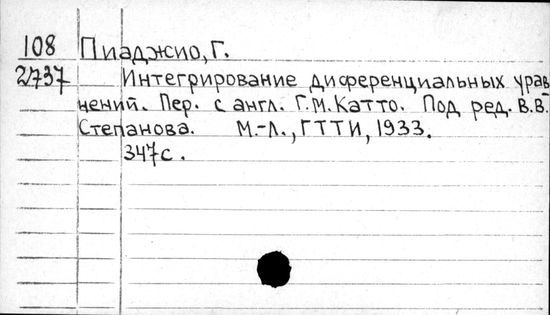 108 Пиаджио, Г.
2737 Интегрирование диференциальных урав
нений. Пер. с англ. Г.М.Катто. Под ред. В.В.
Степанова. М.-Л., ГТТИ, 1933.
347с.